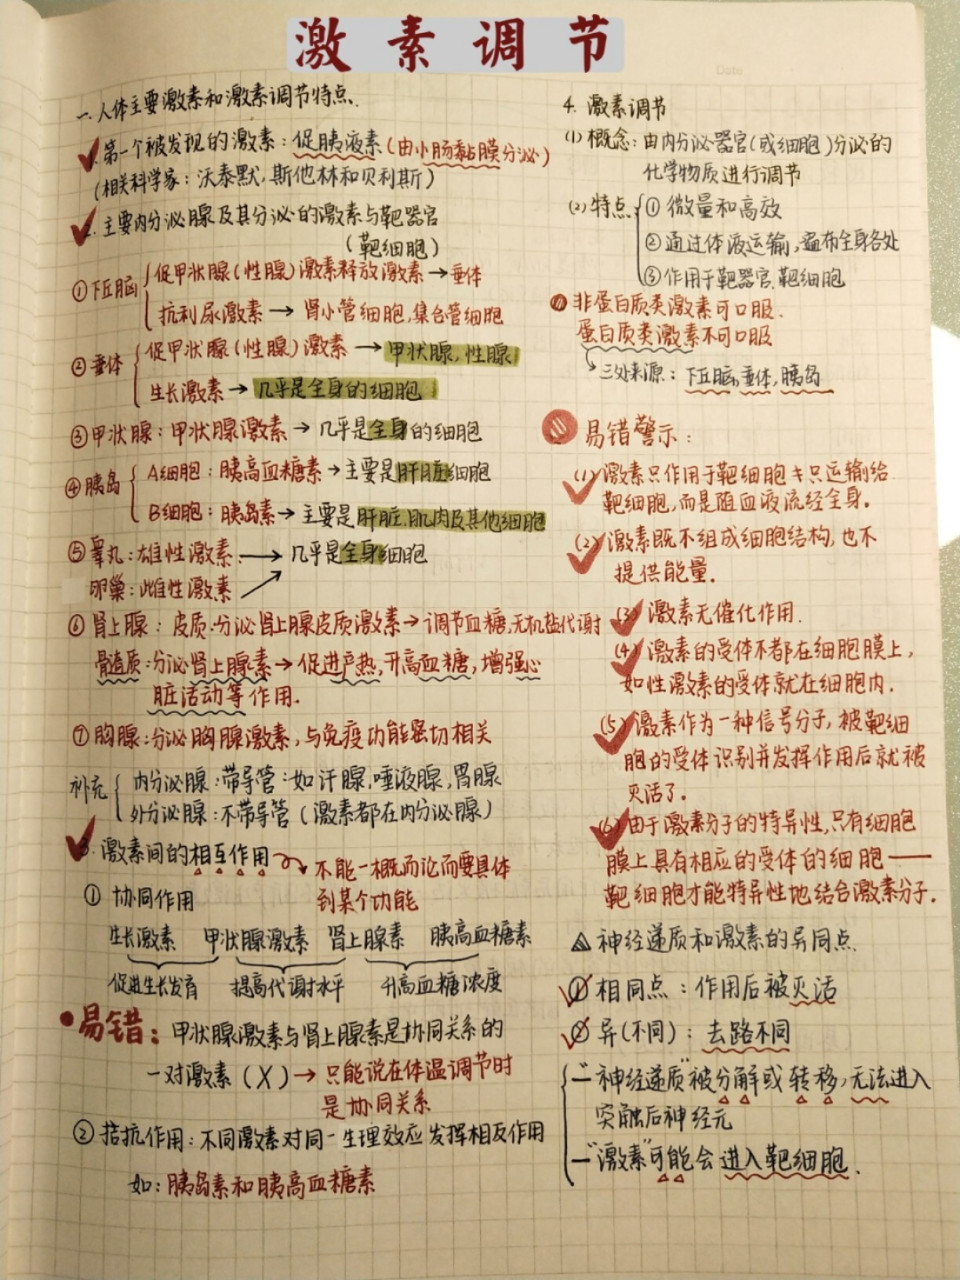 激素调节
Date
一.人体主要激素和激素调节特点.
1.第一个被发现的激素：促胰液素(由小肠黏膜分泌)
(相关科学家：沃泰默,斯他林和贝利斯)
2.主要内分泌腺及其分泌的激素与靶器官
(靶细胞)
①下丘脑 促甲状腺(性腺)激素释放激素→垂体
抗利尿激素→肾小管细胞,集合管细胞
②垂体 促甲状腺(性腺)激素→甲状腺,性腺
生长激素→几乎是全身的细胞
③甲状腺：甲状腺激素→几乎是全身的细胞
④胰岛 A细胞：胰高血糖素→主要是肝脏细胞
B细胞：胰岛素→主要是肝脏.肌肉及其他细胞
⑤睾丸：雄性激素→几乎是全身细胞
卵巢：雌性激素
⑥肾上腺：皮质:分泌肾上腺皮质激素→调节血糖,无机盐代谢
髓质:分泌肾上腺素→促进产热,升高血糖,增强心
脏活动等作用.
⑦胸腺:分泌胸腺激素,与免疫功能密切相关
补充 内分泌腺:带导管:如汗腺,唾液腺,胃腺
外分泌腺:不带导管(激素都在内分泌腺)
3.激素间的相互作用 不能一概而论而要具体
到某个功能
①协同作用
生长激素 甲状腺激素 肾上腺素 胰高血糖素
促进生长发育 提高代谢水平 升高血糖浓度
易错：甲状腺激素与肾上腺素是协同关系的
一对激素(X)→只能说在体温调节时
是协同关系
②拮抗作用：不同激素对同一生理效应发挥相反作用
如：胰岛素和胰高血糖素
4.激素调节
(1)概念：由内分泌器官(或细胞)分泌的
化学物质进行调节
(2)特点 ①微量和高效
②通过体液运输,遍布全身各处
③作用于靶器官.靶细胞
非蛋白质类激素可口服.
蛋白质类激素不可口服
→三处来源：下丘脑,垂体,胰岛
易错警示：
(1)激素只作用于靶细胞≠只运输给
靶细胞,而是随血液流经全身.
(2)激素既不组成细胞结构,也不
提供能量.
(3)激素无催化作用.
(4)激素的受体不都在细胞膜上,
如性激素的受体就在细胞内.
(5)激素作为一种信号分子,被靶细
胞的受体识别并发挥作用后就被
灭活了.
(6)由于激素分子的特异性,只有细胞
膜上具有相应的受体的细胞——
靶细胞才能特异性地结合激素分子.
神经递质和激素的异同点.
①相同点：作用后被灭活
②异(不同)：去路不同
一"神经递质"被分解或转移,无法进入
突触后神经元
一"激素"可能会进入靶细胞.